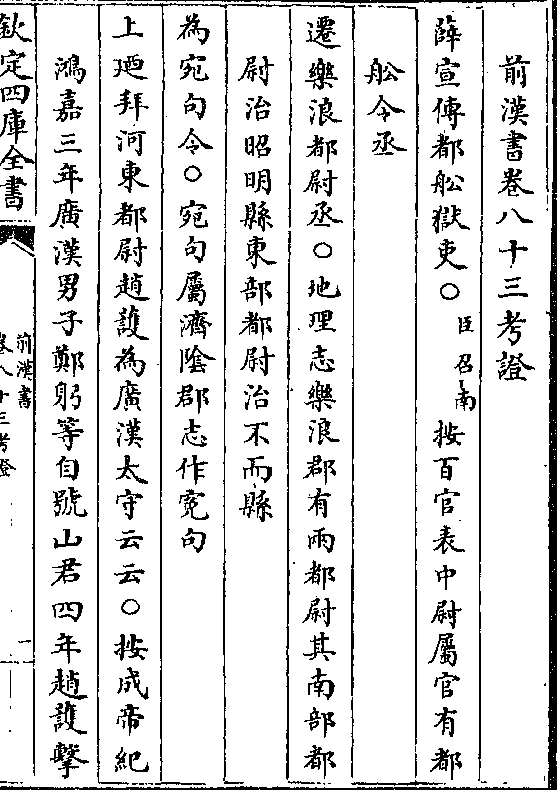 前漢書卷八十三考證
薛宣傳都船獄吏〇臣召南按百官表中尉屬官有都
船令丞
遷樂浪都尉丞〇地理志樂浪郡有兩都尉其南部都
尉治昭明縣東部都尉治不而縣
為宛句令〇宛句屬濟隂郡志作冤句
上廼拜河東都尉趙護為廣漢太守云云〇按成帝紀
鴻嘉三年廣漢男子鄭躬等自號山君四年趙護擊
欽定四庫全書
前漢書
卷八十三考證
一